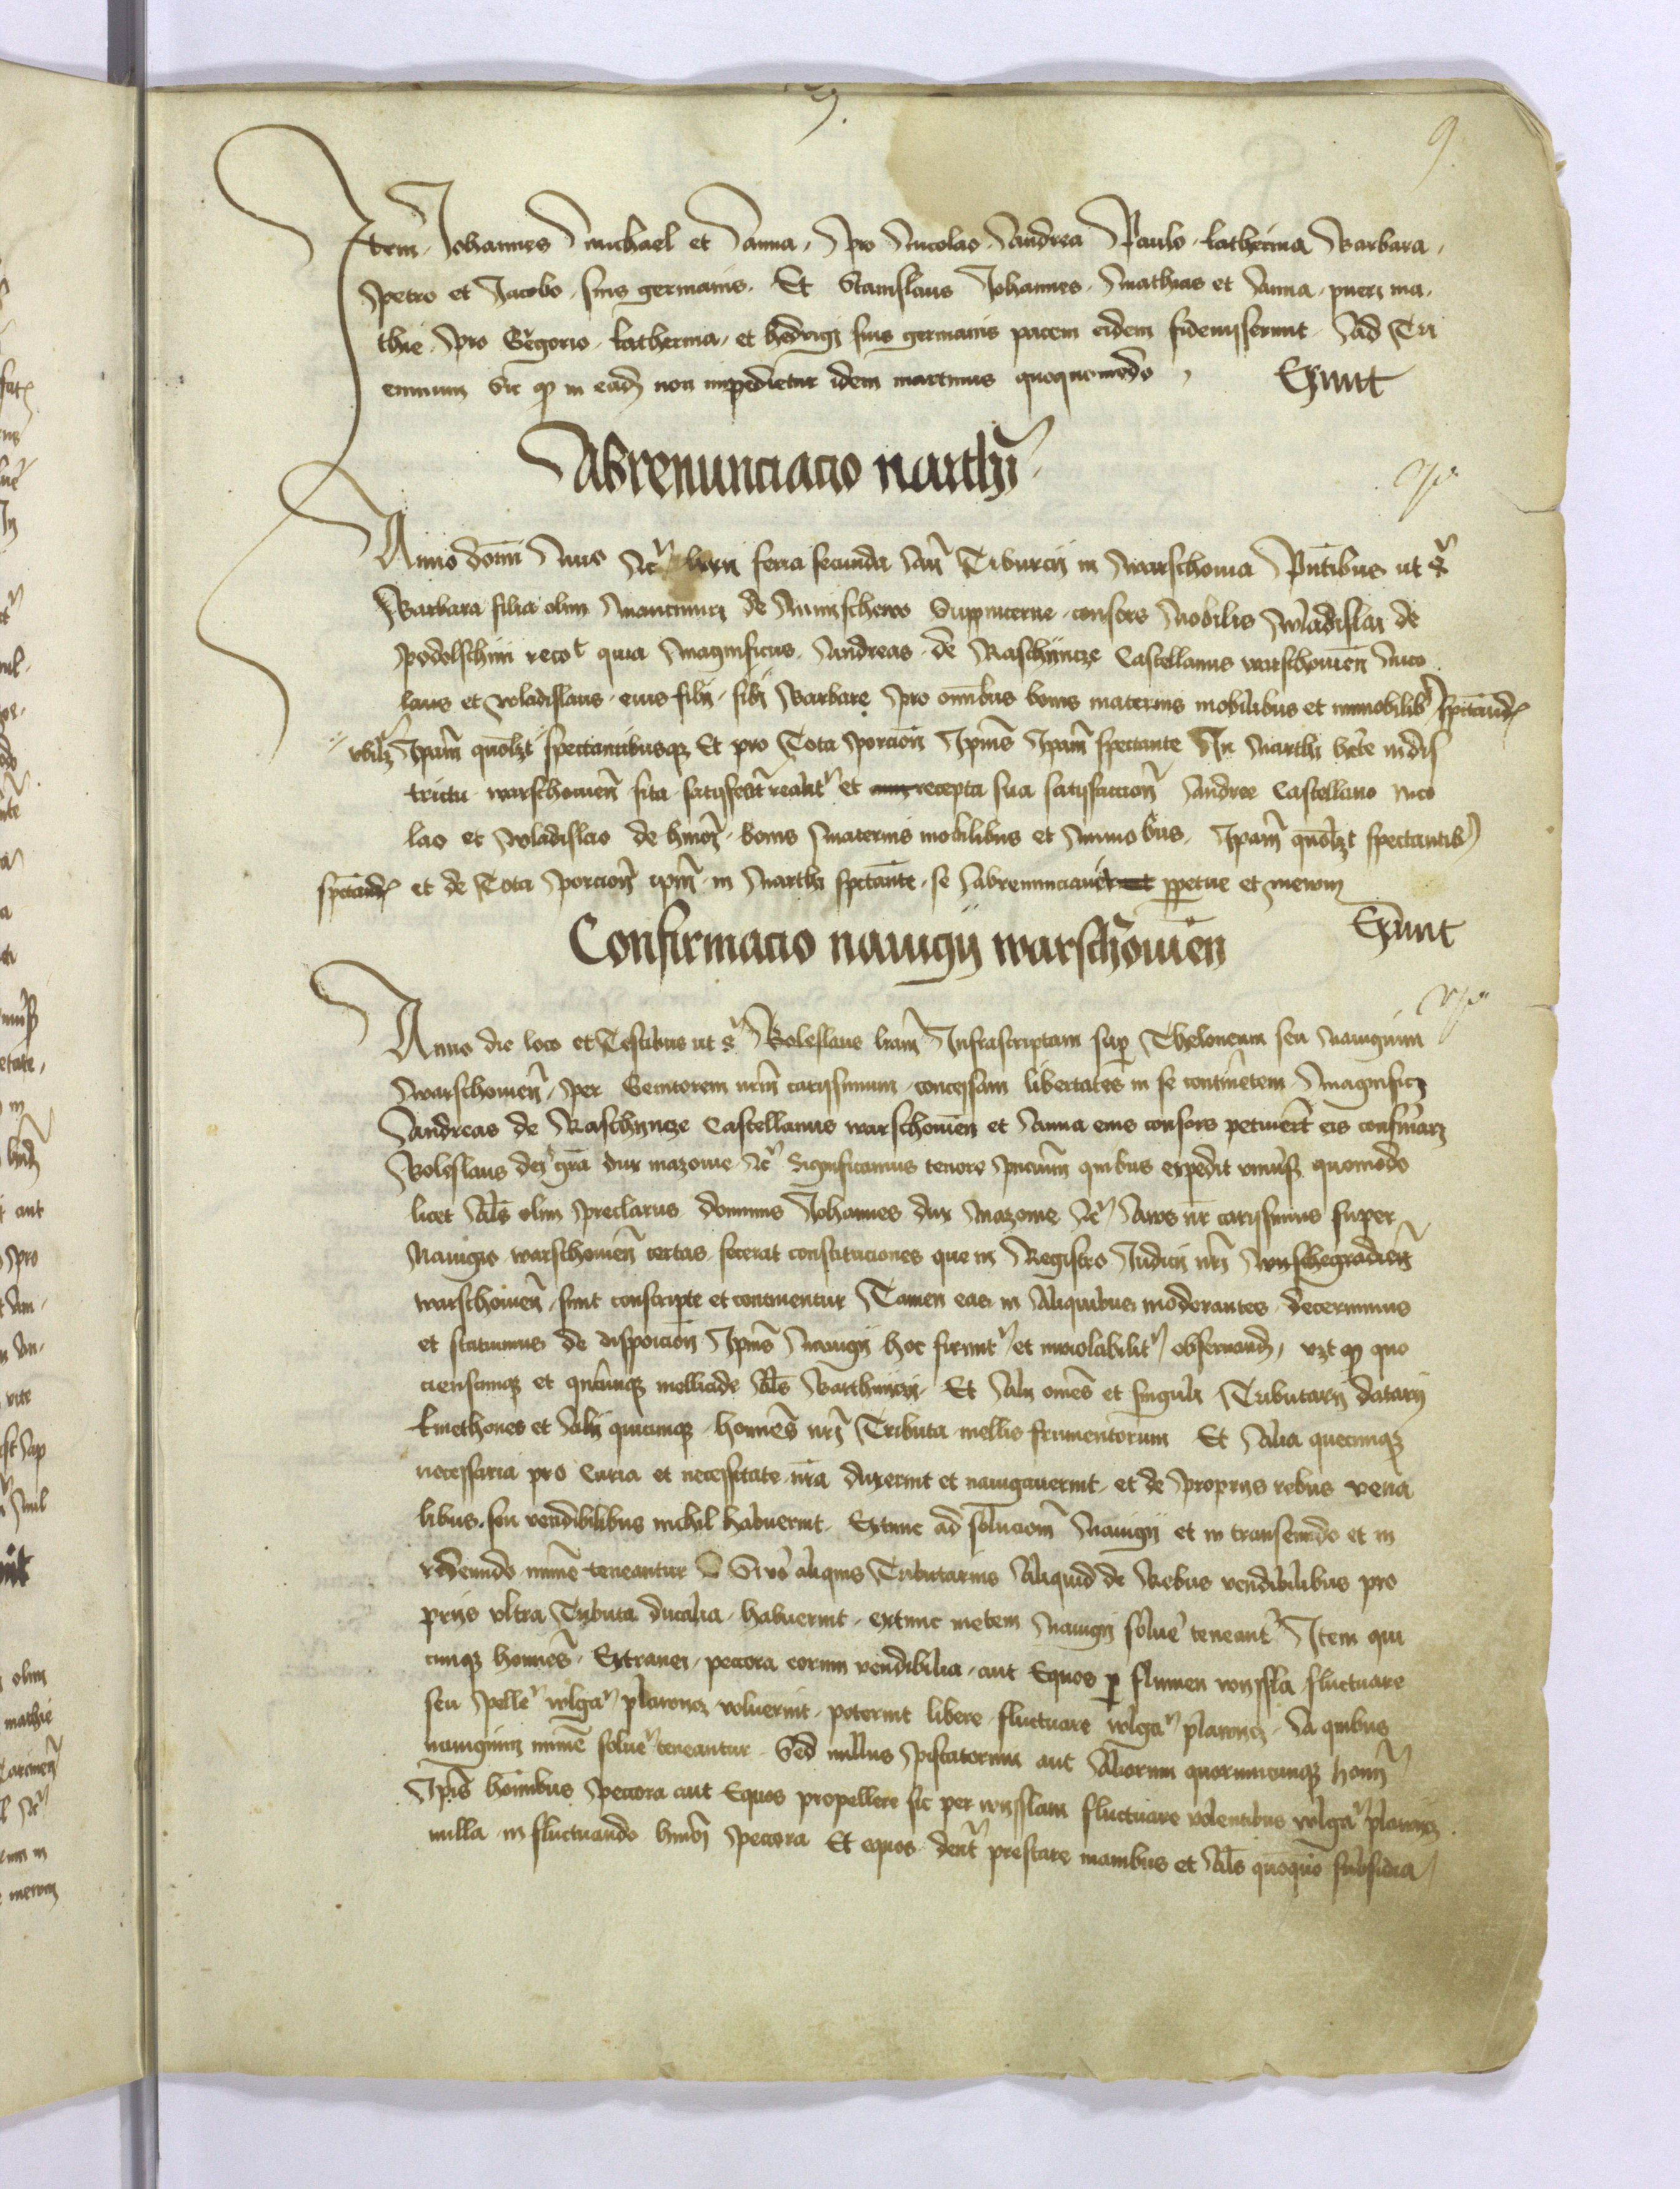 9.
Item Johannes Michael et Anna, pro Nicolao Andrea Paulo katherina Barbara,
Petro et Jacobo, suis germanis. Et Stanislaus Johannes, Mathias et Anna, pueri ma
thie, pro Gregorio, katherina, et hedwigi suis germanis pacem eidem fideiusserunt Ad Tri
ennium Sic qp in ead non impedietur idem martinus quoquomodo, Exiunt
Abrenunciacio narthi
Anno domi Mmo etc feria secunda an Tiburcii in warschouia Pntibus ut s
Barbara filia olim de consors Nobilis wladislai de
recot quia Magnificus, Andreas de Raschyncze Castellanus warschouien Nico
laus et wladislaus, eius filii, sibi Barbare pro omibus bonis maternis mobilibus et immobilib spectand
Ipam quolzt spectantibusqz Et pro Tota porcion Ipius Ipam spectante In Narthi in dis
trictu warschouien sita satisfecert realit et recepta sua satisfaccion Andree Castellano Nico
lao et wladislao de hmoi, bonis Maternis mobilibus et Immobus, Ipam quolzt spectantib
spectand et de Tota porcion ipm in Narthi spectante, se abrenunciauit ppetue et in ewm
Exiunt
Confirmacio nauigii warschouien
Anno die loco et Testibus ut s Boleslaus lram Infrascriptam sup Theloneum seu Nauigium
warschouien, per Genitorem nrm carissimum, concessam libertates in se continetem Magnifici
Andreas de Raschyncze Castellanus warschouien et Anna eius consors petiuert eis confirmari
Boleslaus dei gra dux mazouie etc Significamus tenore pncium quibus expedit vniuersis quomodo
licet als olim preclarus dominus Johannes dux Mazouie etc Auus nr carissimus super
Nauigio warschouien certas fecerat constituciones que in Registro Judicii nri wyschegradien
warschouien, sunt conscripte et continentur Tamen eas in Aliquibus moderantes, decernimus
et statuimus de disposicion Ipius Nauigii hoc firmit et inuiolabilit obseruand, vzt qp quo
cienscunqz et qntumqz mellicide als Barthniczi, Et Alii omes et singuli Tributarii datarii
kmethones et Alii quicunqz homies nri Tributa mellis frumentorum Et Alia quecunqz
necessaria pro Curia et necessitate nra duxerint et nauigauerint, et de propriis rebus vena
libus, seu vendibilibus nichil habuerint. Extunc ad solucion Nauigii et in transeundo et in
redeundo minime teneantur Si vo aliquis Tributarius Aliquid de Rebus vendibilibus pro
priis vltra Tributa ducalia habuerint, extunc metem Nauigii solue teneant Item qui
cunqz homies Extranei, peccora eorum vendibilia, aut Equos p flumen wyssla fluctuare
seu pelle wlga plawicz voluerint, poterint libere fluctuare wlga plawicz A quibus
nauigium minime solue teneantur Sed nullus piscatorum aut Aliorum quorumcunqz homi
Ipis homibus peccora aut Equos propellere sic per wysslam fluctuare volentibus wlga plawicz
nulla in fluctuando hmoi peccora Et equos dent prestare manibus et als quoquo subsidia